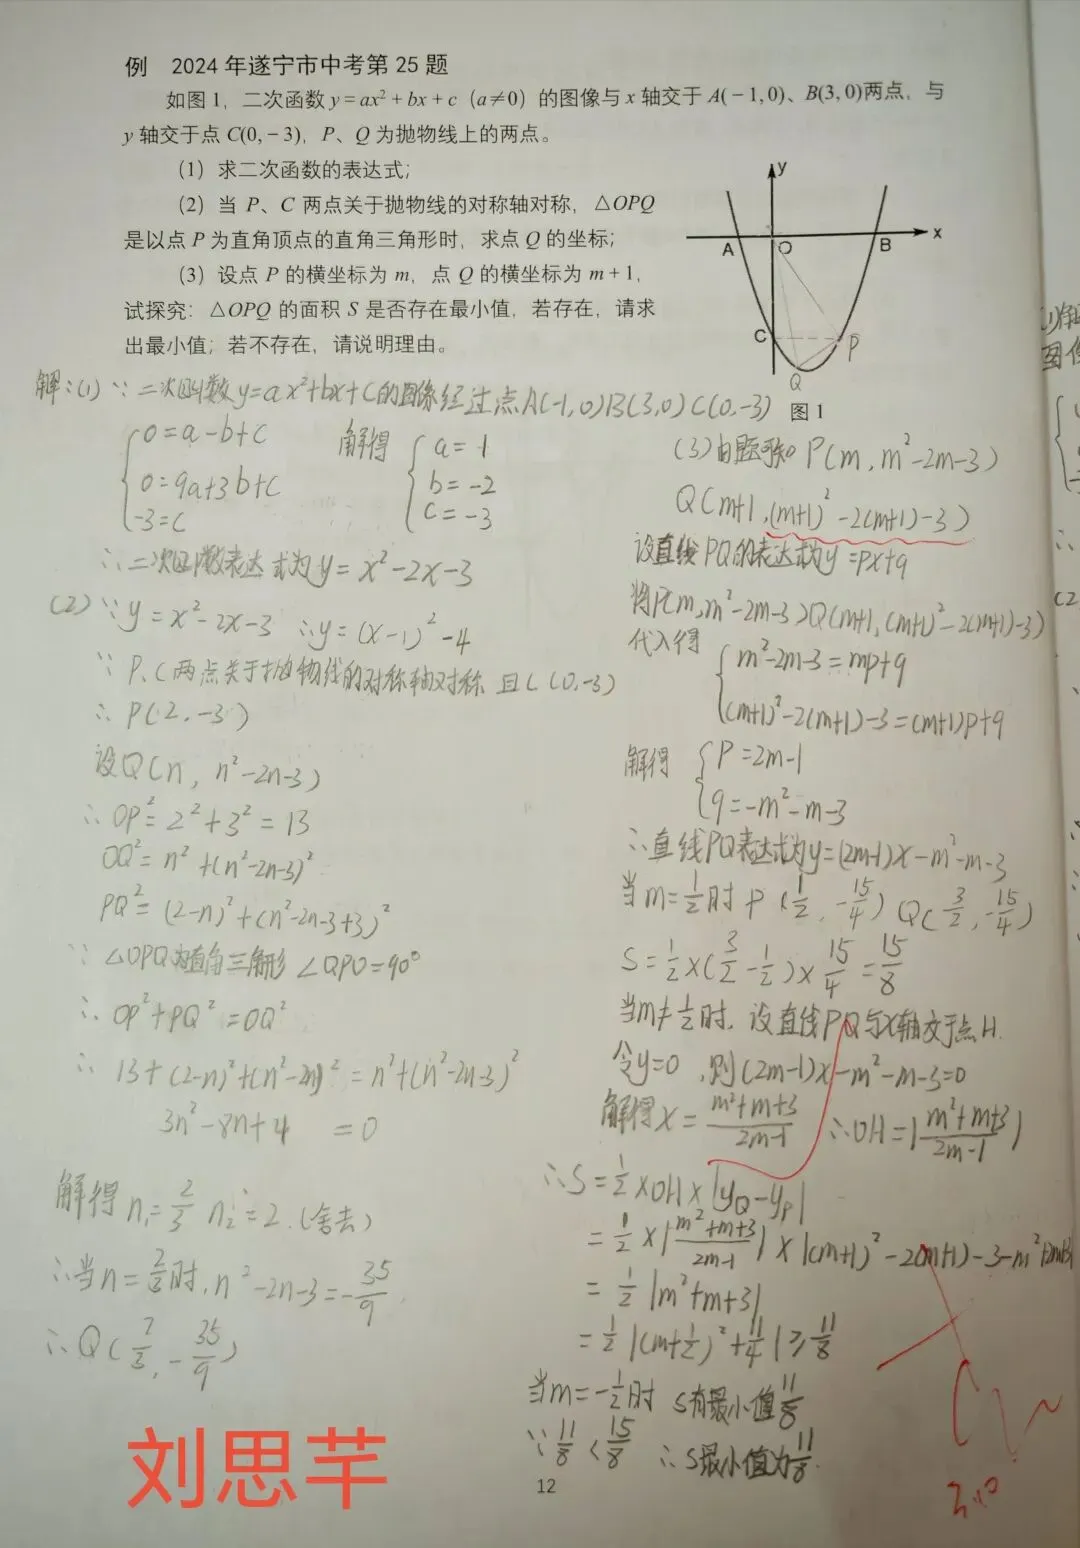 例 2024年遂宁市中考第25题
如图1，二次函数 y=ax²+bx+c（a≠0）的图像与 x 轴交于 A(−1,0)、B(3,0)两点，与
y 轴交于点 C(0,−3)，P、Q 为抛物线上的两点。
（1）求二次函数的表达式；
（2）当 P、C 两点关于抛物线的对称轴对称，△OPQ
是以点 P 为直角顶点的直角三角形时，求点 Q 的坐标；
（3）设点 P 的横坐标为 m，点 Q 的横坐标为 m+1，
试探究：△OPQ 的面积 S 是否存在最小值，若存在，请求
出最小值；若不存在，请说明理由。
y
A O B x
C P
Q
图1
解:(1) ∵二次函数y=ax²+bx+c的图像经过点A(-1,0)B(3,0)C(0,-3)
{0=a-b+c
0=9a+3b+c
-3=c
解得 {a=1
b=-2
c=-3
∴二次函数表达式为y=x²-2x-3
(2) ∵y=x²-2x-3 ∴y=(x-1)²-4
∵P、C两点关于抛物线的对称轴对称 且C(0,-3)
∴P(2,-3)
设Q(n, n²-2n-3)
∴OP²=2²+3²=13
OQ²=n²+(n²-2n-3)²
PQ²=(2-n)²+(n²-2n-3+3)²
∵△OPQ为直角三角形 ∠QPO=90°
∴OP²+PQ²=OQ²
∴13+(2-n)²+(n²-2n)²=n²+(n²-2n-3)²
3n²-8n+4=0
解得n₁=2/3 n₂=2.(舍去)
∴当n=2/3时,n²-2n-3=-35/9
∴Q(2/3,-35/9)
(3)由题可知P(m,m²-2m-3)
Q(m+1,(m+1)²-2(m+1)-3)
设直线PQ的表达式为y=px+q
将P(m,m²-2m-3)Q(m+1,(m+1)²-2(m+1)-3)
代入得
{m²-2m-3=mp+q
(m+1)²-2(m+1)-3=(m+1)p+q
解得 {p=2m-1
q=-m²-m-3
∴直线PQ表达式为y=(2m-1)x-m²-m-3
当m=1/2时 P(1/2,-15/4) Q(3/2,-15/4)
S=1/2×(3/2-1/2)×15/4=15/8
当m≠1/2时,设直线PQ与x轴交于点H.
令y=0,则(2m-1)x-m²-m-3=0
解得x=(m²+m+3)/(2m-1) ∴OH=|(m²+m+3)/(2m-1)|
∴S=1/2×OH×|yQ-yP|
=1/2×|(m²+m+3)/(2m-1)|×|(m+1)²-2(m+1)-3-m²+2m+3|
=1/2|m²+m+3|
=1/2|(m+1/2)²+11/4|≥11/8
当m=-1/2时 S有最小值11/8
∵11/8<15/8 ∴S最小值为11/8.
刘思芊
12